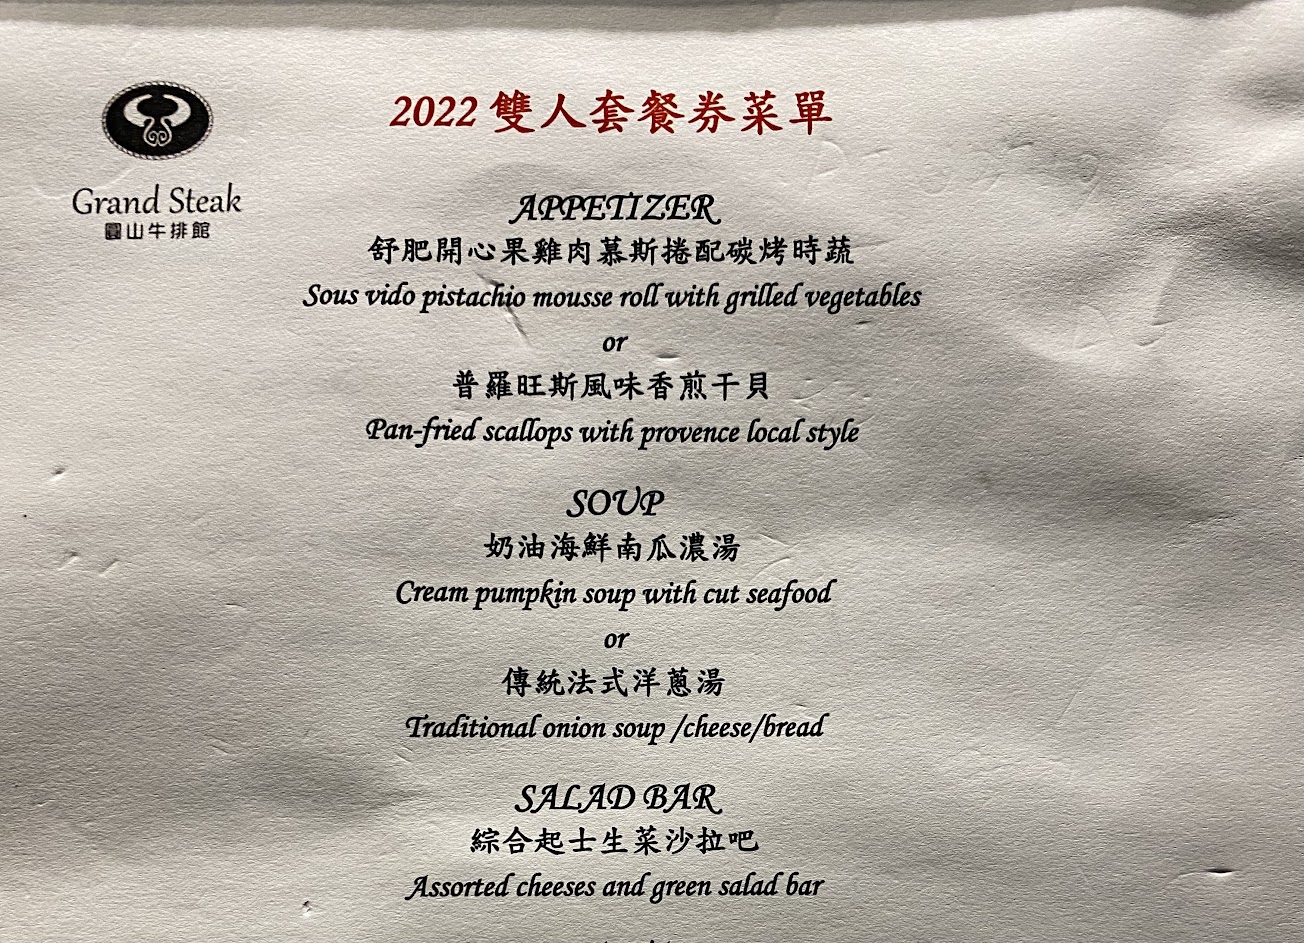 2022 雙人套餐券菜單
Grand Steak
圓山牛排館
APPETIZER
舒肥開心果雞肉慕斯捲配碳烤時蔬
Sous vido pistachio mousse roll with grilled vegetables
or
普羅旺斯風味香煎干貝
Pan-fried scallops with provence local style
SOUP
奶油海鮮南瓜濃湯
Cream pumpkin soup with cut seafood
or
傳統法式洋蔥湯
Traditional onion soup /cheese/bread
SALAD BAR
綜合起士生菜沙拉吧
Assorted cheeses and green salad bar